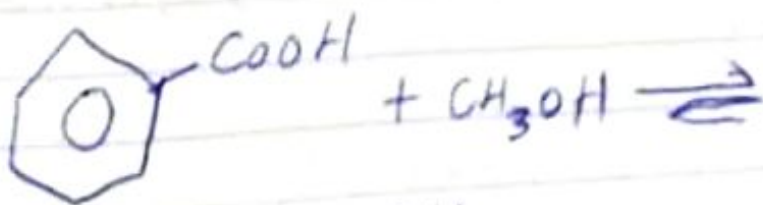 COOH
+ CH₃OH ⇌